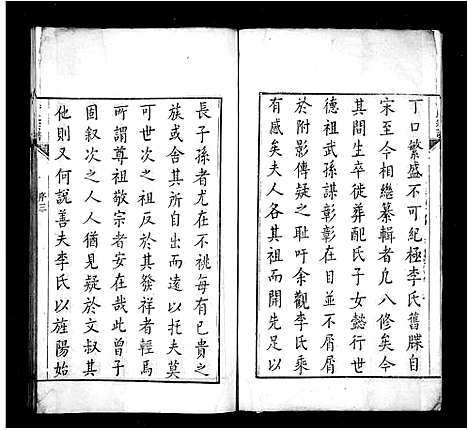 丁口繁盛不可紀極李氏舊牒自
宋至今相繼纂輯者凡八修矣今
其間生卒徙葬配氏子女懿行世
德祖武孫謀彰彰在目並不屑屑
於附影傳疑之恥吁余觀李氏乘
有感矣夫人各其祖而開先足以
長子孫者尤在不祧每有已貴之
族或舍其所自出而遠以托夫莫
可世次之祖反於其發祥者輕焉
所謂尊祖敬宗者安在哉此曾子
固叙次之人人猶見疑於文叔其
他則又何說善夫李氏以旌陽始
序三